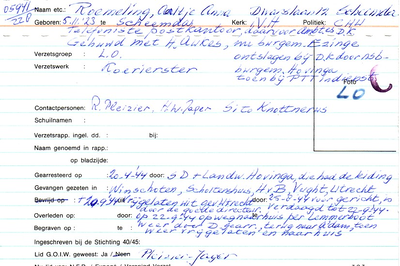 05941/220
Naam etc.: Roemeling, Aaltje Anna
Kerk: N.H Politiek CHU
Geboren: 5.11.'23 te Scheemda
Telefoniste postkantoor, daarvoor ambtes D.K
Gehuwd met H. Luikes, nu burgem. Ezinge
Verzetsgroep : L.O. ontslagen bij D.K door nsb-
burgem. Hovinga
Verzetswerk : Koerierster toen bij PTT in dienst
Foto
LO
Contactpersonen: R. Pleizier, H.W. Jager Sito Knotnerus
Schuilnaam :
Verzetsrapp. ingel. dd. : bij:
Naam genoemd in rapp.:
op bladzijde:
Gearresteerd op : 20-4-'44 door: SD + Landw. Hovinga, de had de leiding
Gevangen gezeten in : Winschoten, Scholtenshuis, H.v.B., Vught, Utrecht
Bevrijd op : vrijgelaten uit door:
door de goede directeur. verdaagd tot 22.9.44.
Overleden op: op 22.9.44 op weg naar huis per
Begraven op : weer door D. gearr., terug naar
weer vrijgelaten en naar huis
Ingeschreven bij de Stichting 40/45:
Lid G.O.I.W. geweest Ja/Neen Pleizier-Jager